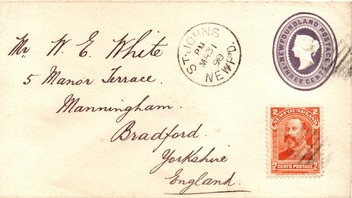 Mr. W. E. White
5 Manor Terrace.
Manningham.
Bradford
Yorkshire
England.
ST. JOHNS
PM
NEWF'D.
NEWFOUNDLAND POSTAGE
THREE CENTS
NEWFOUNDLAND
2 2
CENTS POSTAGE